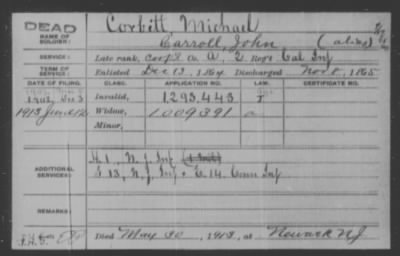 DEAD
NAME OF SOLDIER: Corbitt, Michael
Carroll, John (alias)
SERVICE: Late rank, Corp'l Co. A, 2 Reg't Cal Inf
TERM OF SERVICE: Enlisted Dec 13, 1864 Discharged Nov 8, 1865
DATE OF FILING. CLASS. APPLICATION NO. LAW. CERTIFICATE NO.
1902, Dec 3 Invalid, 1,293,443 I
1913 June 12 Widow, 1009391 a
Minor,
ADDITIONAL SERVICES: H. 1, N.J. Inf
I 13, N.J. Inf + E. 14. Conn Inf
REMARKS:
Died May 30, 1913, at Newark NJ